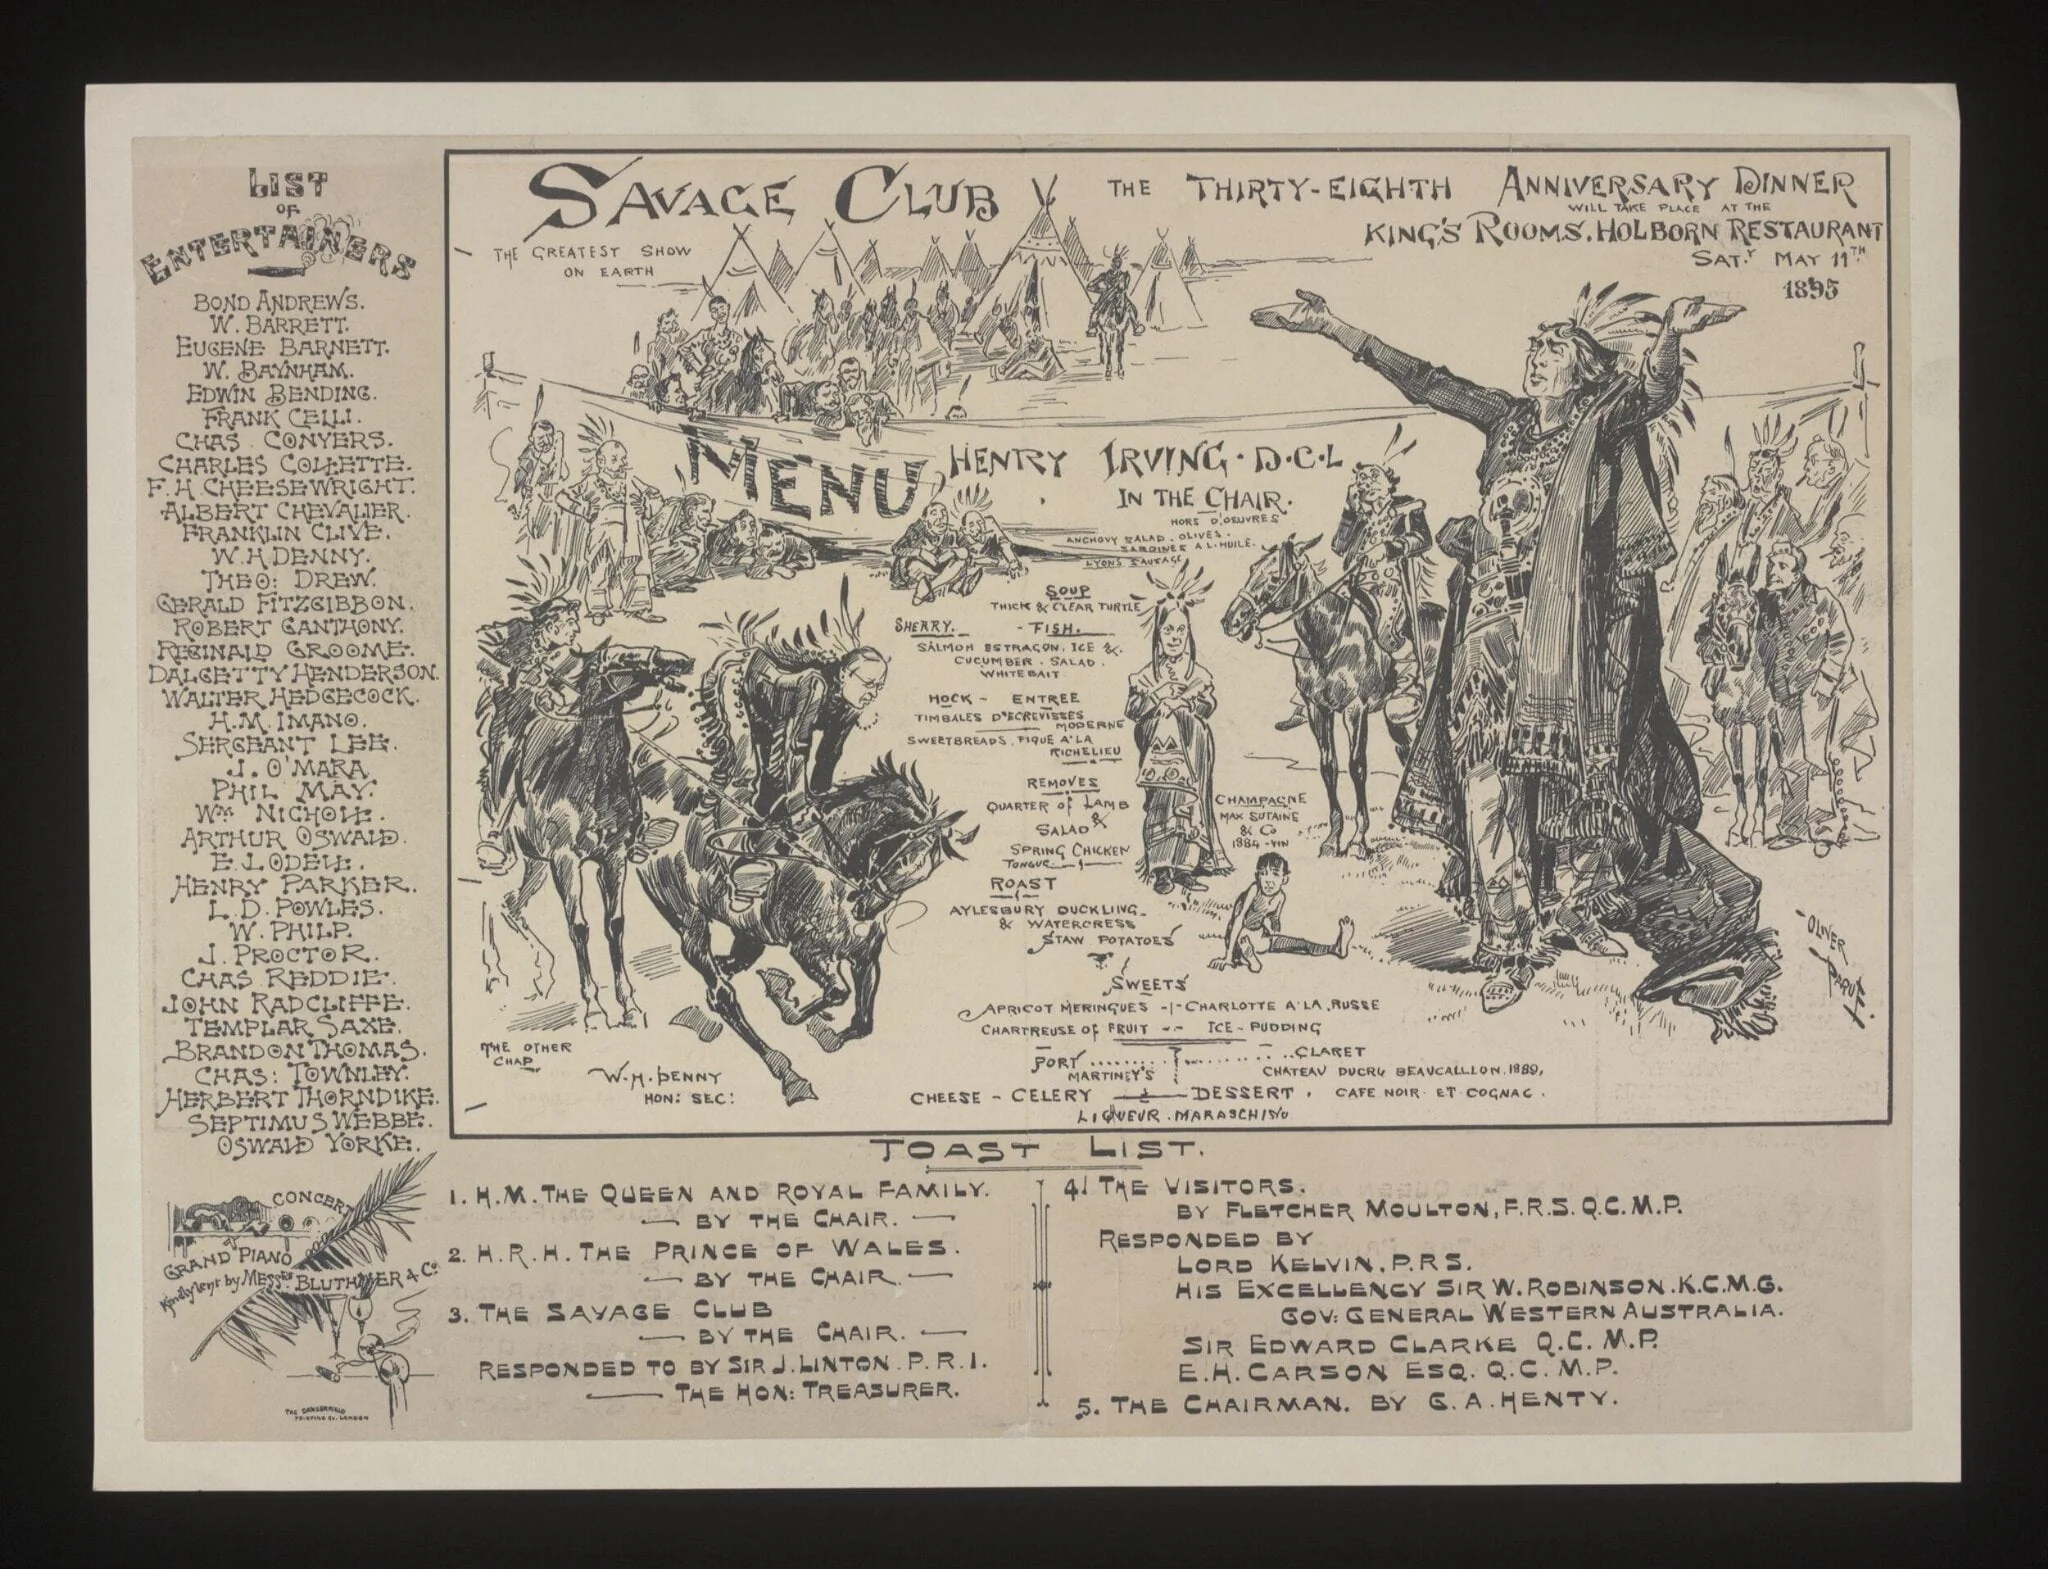 LIST
OF
ENTERTAINERS
BOND ANDREWS.
W. BARRETT.
EUGENE BARNETT.
W. BAYNHAM.
EDWIN BENDING.
FRANK CELLI.
CHAS. CONYERS.
CHARLES COLLETTE.
F. H. CHEESEWRIGHT.
ALBERT CHEVALIER.
FRANKLIN CLIVE.
W. H. DENNY.
THEO: DREW.
GERALD FITZGIBBON.
ROBERT GANTHONY.
REGINALD GROOME.
DALGETTY HENDERSON.
WALTER HEDGECOCK.
H. M. IMANO.
SERGEANT LEE.
J. O'MARA.
PHIL MAY.
WM NICHOLL.
ARTHUR OSWALD.
E. J. ODELL.
HENRY PARKER.
L. D. POWLES.
W. PHILP.
J. PROCTOR.
CHAS REDDIE.
JOHN RADCLIFFE.
TEMPLAR SAXE.
BRANDON THOMAS.
CHAS: TOWNLEY.
HERBERT THORNDIKE.
SEPTIMUS WEBBE.
OSWALD YORKE.
CONCERT
GRAND PIANO
Kindly lent by MESSRS BLUTHNER & Co.
THE DANGERFIELD
PRINTING CO. LONDON
SAVAGE CLUB
THE GREATEST SHOW
ON EARTH
THE THIRTY-EIGHTH ANNIVERSARY DINNER
WILL TAKE PLACE AT THE
KING'S ROOMS, HOLBORN RESTAURANT
SATY MAY 11TH
1895
MENU
HENRY IRVING · D·C·L
IN THE CHAIR.
HORS D'OEUVRES
ANCHOVY SALAD. OLIVES.
SARDINES A L'HUILE.
LYONS SAUSAGE
SOUP
THICK & CLEAR TURTLE
SHERRY. - FISH.
SALMON ESTRAGON, ICE &
CUCUMBER. SALAD.
WHITEBAIT
HOCK - ENTREE
TIMBALES D'ECREVISSES
MODERNE
SWEETBREADS. PIQUE A'LA
RICHELIEU
REMOVES
QUARTER OF LAMB
&
SALAD
SPRING CHICKEN
TONGUE
CHAMPAGNE
MAX SUTAINE
& Co
1884 - VIN
ROAST
AYLESBURY DUCKLING.
& WATERCRESS
STAW POTATOES
SWEETS
APRICOT MERINGUES -|- CHARLOTTE A'LA RUSSE
CHARTREUSE OF FRUIT -- ICE-PUDDING
PORT ........ CLARET
MARTINEY'S
CHATEAU DUCRU BEAUCAILLON. 1889,
CHEESE - CELERY DESSERT. CAFE NOIR ET COGNAC.
LIQUEUR. MARASCHINO
THE OTHER
CHAP.
W. H. DENNY
HON: SEC:
OLIVER
PAQUE
TOAST LIST.
1. H.M. THE QUEEN AND ROYAL FAMILY.
— BY THE CHAIR. —
2. H.R.H. THE PRINCE OF WALES.
— BY THE CHAIR. —
3. THE SAVAGE CLUB
— BY THE CHAIR. —
RESPONDED TO BY SIR J. LINTON. P.R.I.
— THE HON: TREASURER.
4. THE VISITORS.
BY FLETCHER MOULTON, F.R.S. Q.C. M.P.
RESPONDED BY
LORD KELVIN, P.R.S.
HIS EXCELLENCY SIR W. ROBINSON. K.C.M.G.
GOV: GENERAL WESTERN AUSTRALIA.
SIR EDWARD CLARKE Q.C. M.P.
E. H. CARSON ESQ. Q.C. M.P.
5. THE CHAIRMAN. BY G. A. HENTY.